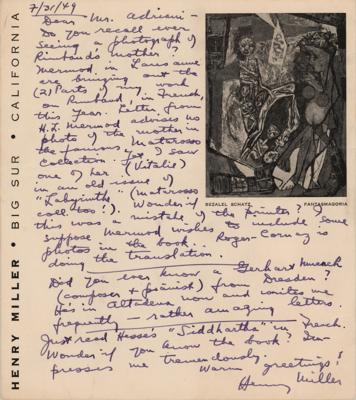 7/21/49
Dear Mr. Adrieni –
Do you recall ever
seeing a photograph of
Rimbaud's mother?
Mermod in Lausanne
are bringing out the
(2) Parts of my work
on Rimbaud, in French,
this year. Letter from
H.L. Mermod advises us
photo of the mother in
the famous Matarasso
collection. Yet I saw
one of her (Vitalie)
in an old issue of
"Labyrinthe" (Matarasso
coll. too!) Wonder if
this was a mistake of the printer's? I
suppose Mermod wishes to include some
photos in the book. Roger
doing the translation.
Did you ever know a Gerhart Muench
(composer + pianist) from Dresden?
He's in Altadena now and writes me
frequently – rather amazing letters.
Just read Hesse's "Siddhartha" in French.
Wonder if you know the book? Im-
presses me tremendously.
Warm greetings!
Henry Miller
BEZALEL SCHATZ FANTASMAGORIA
HENRY MILLER • BIG SUR • CALIFORNIA